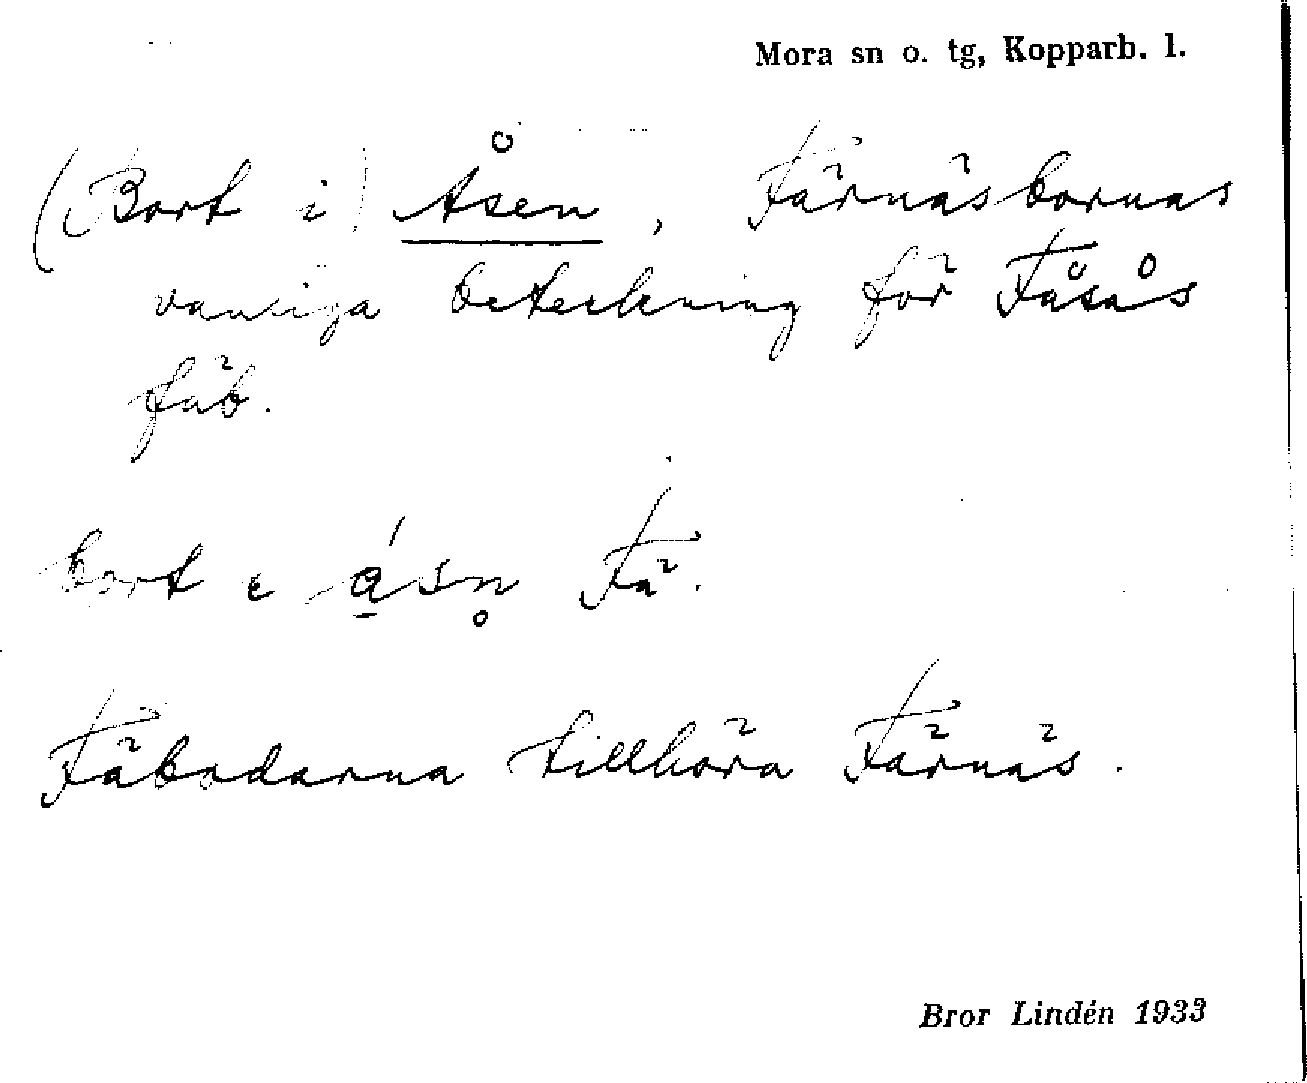 Mora sn o. tg, Kopparb. l.
(Bort i) Åsen, Färnäsbornas
vanliga beteckning för Fåsås
fäb.
bort
Fä.
Fäbodarna tillhöra Färnäs.
Bror Lindén 1933